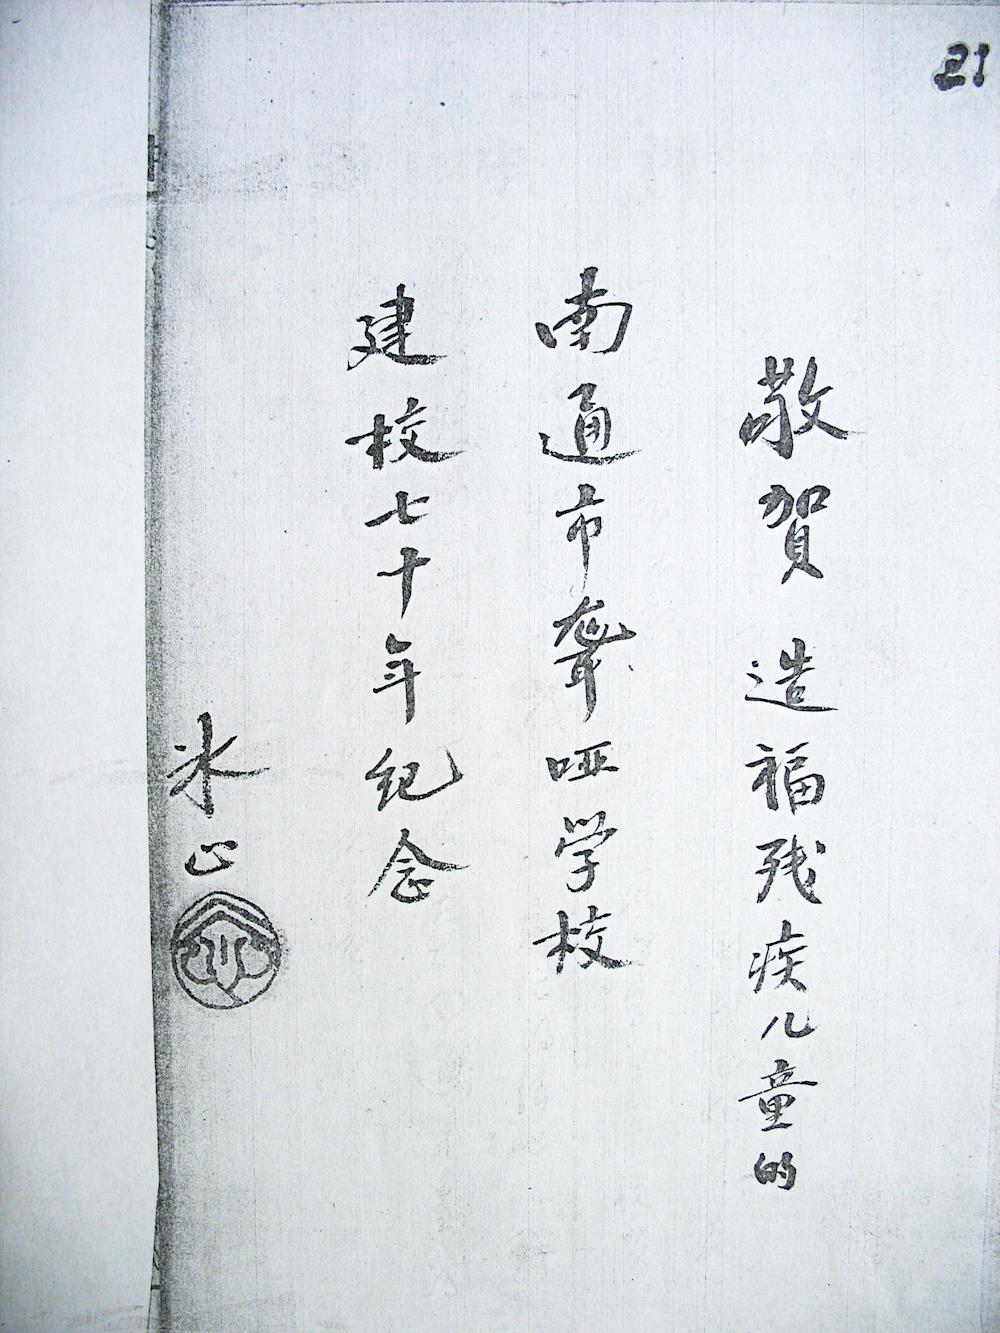 21
敬賀 造福残疾儿童的
南通市聋哑学校
建校七十年纪念
冰心